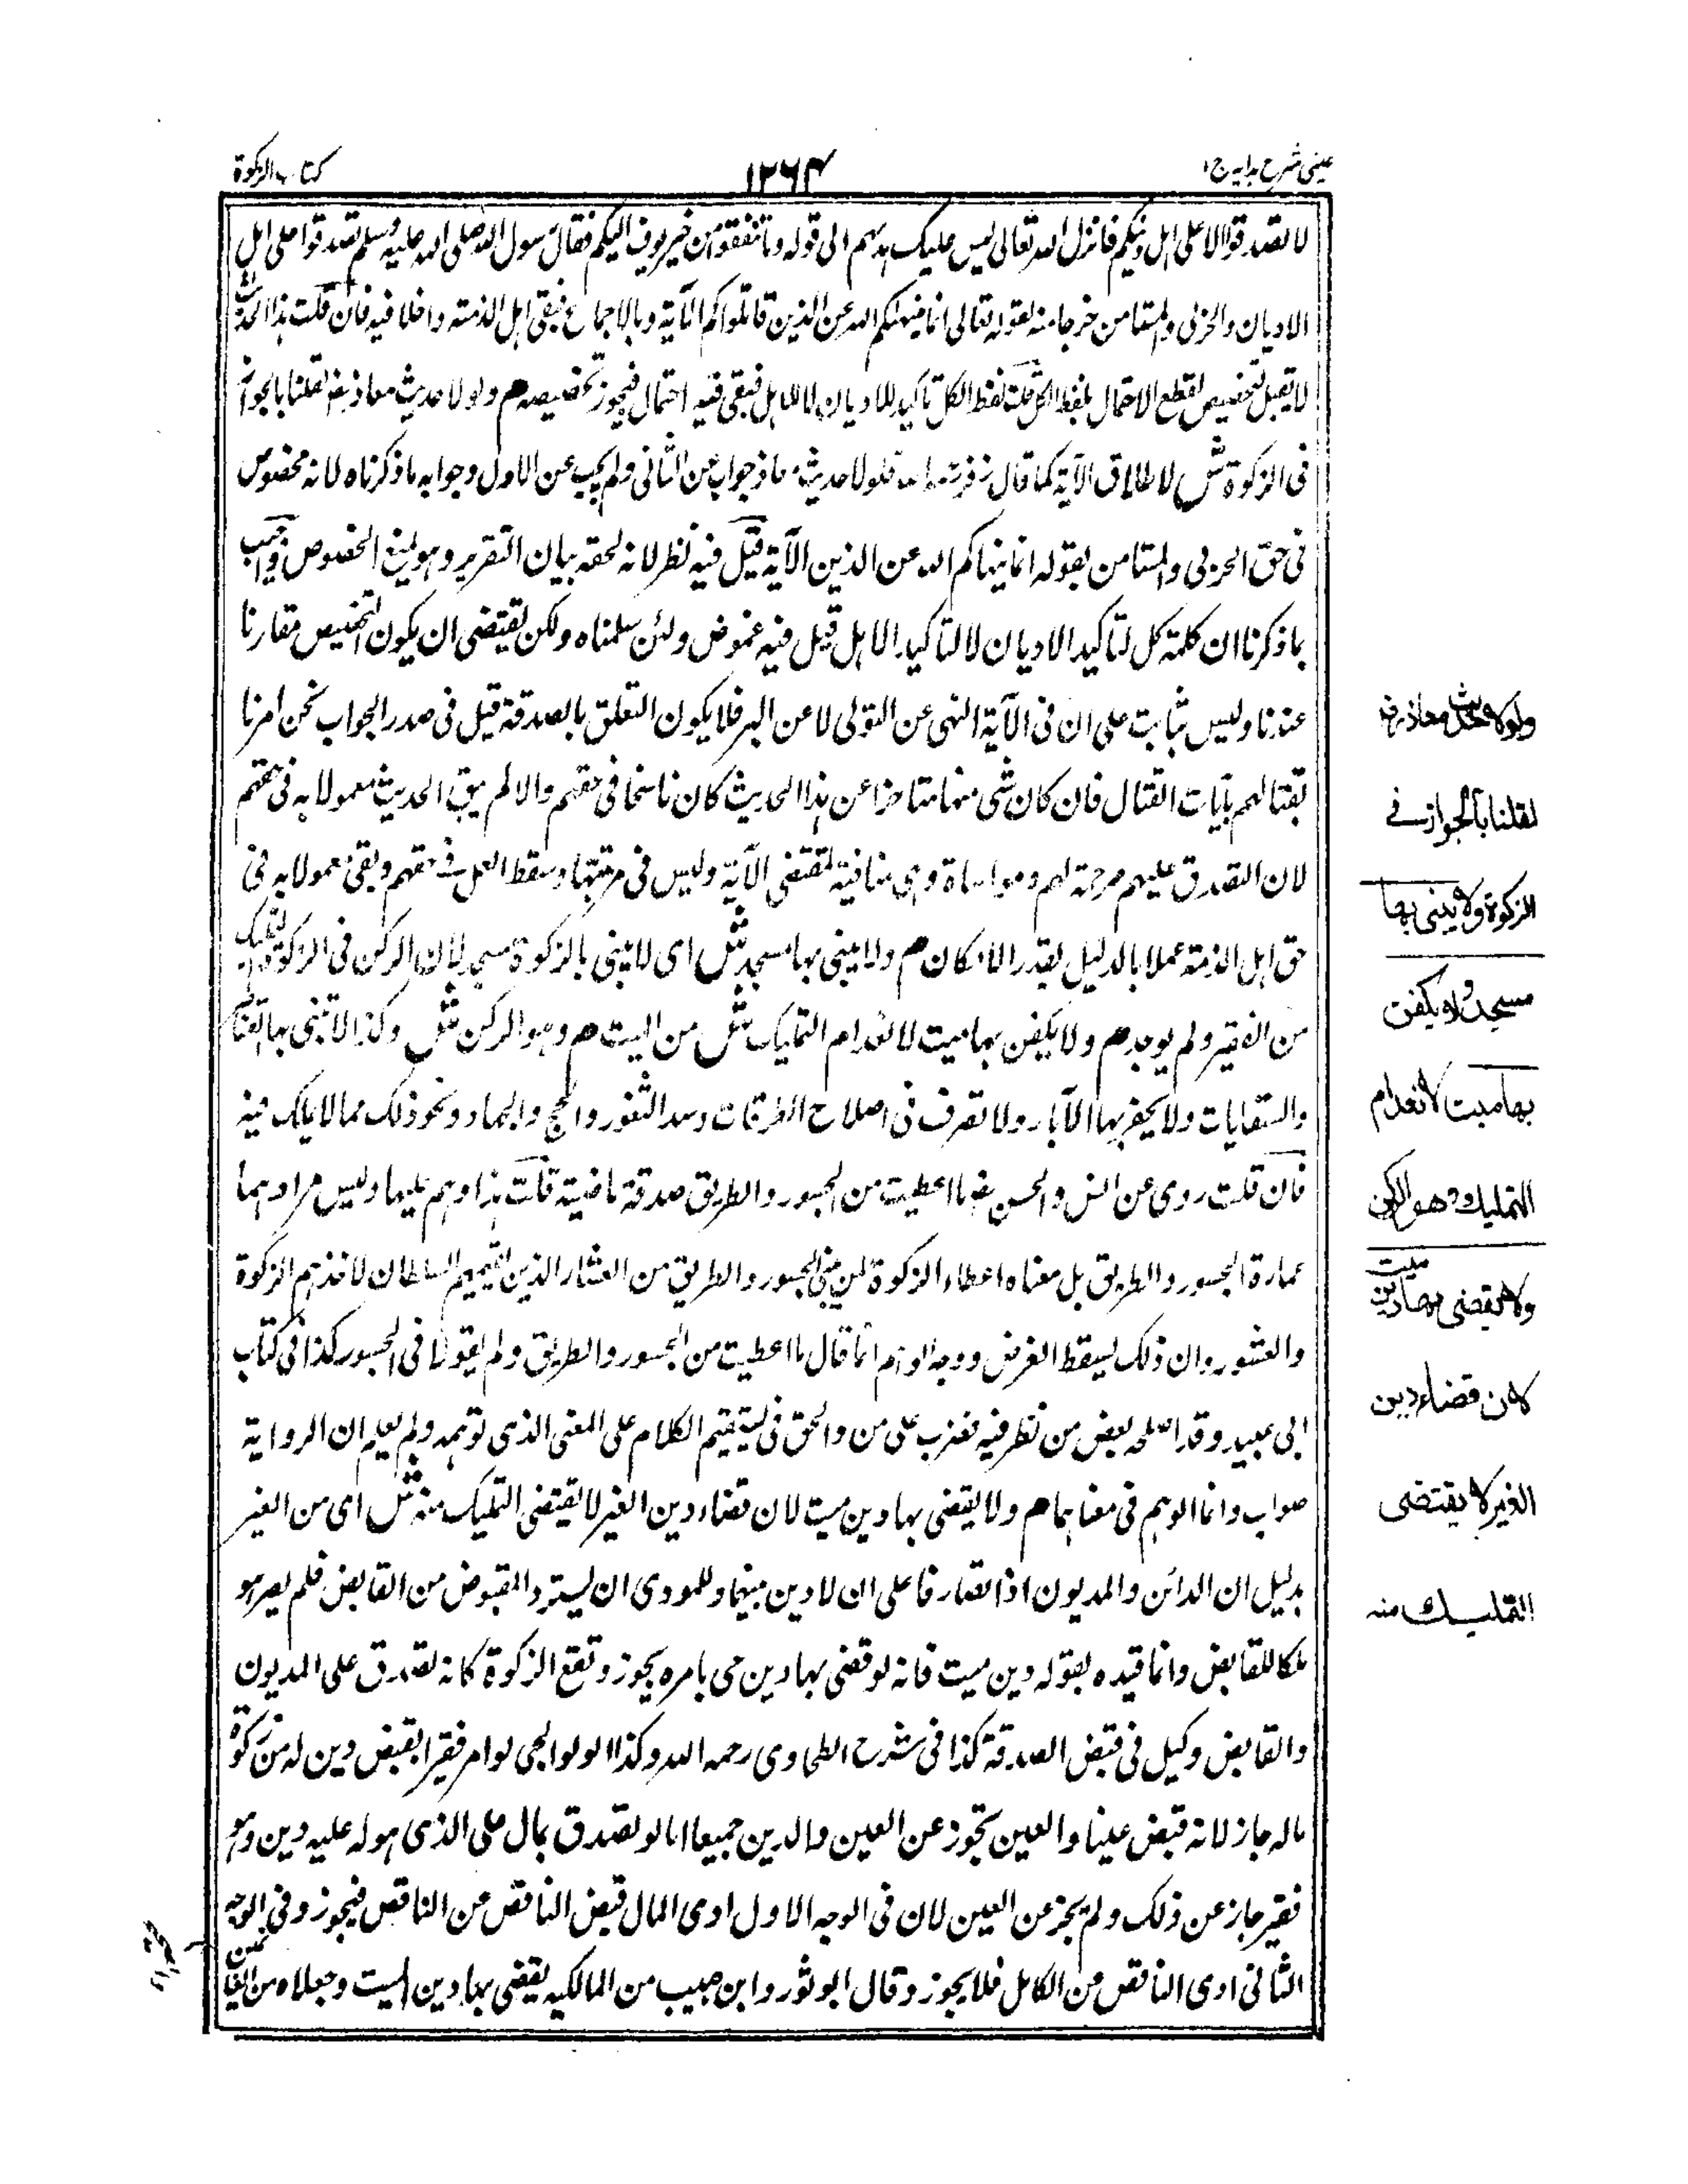 عینی شرح ہدایہ ج ۱
۱۲۶۴
کتاب الزکوة
لا تصدقوا الا علی اهل دینکم فانزل الله تعالی لیس علیک هدٰهم الی قوله وما تنفقوا من خیر یوف الیکم فقال رسول الله صلی الله علیه وسلم تصدقوا علی اهل
الادیان والحربی والمستامن خرجا منه بقوله تعالی انما ینهٰکم الله عن الذین قاتلوکم الآیة وبالاجماع فبقی اهل الذمة داخلا فیه فان قلت هذا الحدیث
لا یقبل التخصیص لقطع الاحتمال بلفظ الکل قلت لفظ الکل تاکید للادیان لا للاهل فبقی فیه احتمال فیجوز تخصیصه م ولولا حدیث معاذ رض لقلنا بالجواز
فی الزکوة ش لاطلاق الآیة کما قال زفر رحمه الله فلولا حدیث معاذ جواب عن الثانی ولم یجب عن الاول وجوابه ما ذکرناه لانه مخصوص
فی حق الحربی والمستامن بقوله انما ینهاکم الله عن الذین الآیة قیل فیه نظر لانه لحقه بیان التقریر وهو یمنع الخصوص واجیب
بما ذکرنا ان کلمة کل لتاکید الادیان لا لتاکید الاهل قیل فیه غموض ولئن سلمناه ولکن یقتضی ان یکون التخصیص مقارنا
عندنا ولیس بثابت علی ان فی الآیة النهی عن التولی لا عن البر فلا یکون التعلق بالصدقة قیل فی صدر الجواب نحن امرنا
بقتالهم بآیات القتال فان کان شی منها متاخرا عن هذا الحدیث کان ناسخا فی حقهم والا لم یبق الحدیث معمولا به فی حقهم
لان التصدق علیهم مرحمة لهم ومواساة وهی منافیة لمقتضی الآیة ولیس فی مرتبتها وسقط العمل فی حقهم وبقی معمولا به فی
حق اهل الذمة عملا بالدلیل بقدر الامکان م ولا یبنی بها مسجد ش ای لا یبنی بالزکوة مسجد لان الرکن فی الزکوة التملیک
من الفقیر ولم یوجد م ولا یکفن بها میت لانعدام التملیک ش من المیت م وهو الرکن ش وکذا لا تبنی بها القناطر
والسقایات ولا یحفر بها الآبار ولا تصرف فی اصلاح الطرقات وسد الثغور والحج والجهاد ونحو ذلک مما لا یملک فیه
فان قلت روی عن انس والحسن رض ما اعطیت من الجسور والطریق صدقة ماضیة قلت هذا وهم علیهما ولیس مرادهما
عمارة الجسور والطریق بل معناه اعطاء الزکوة لمن یبنی الجسور والطریق من العشار الذین یقیمهم السلطان لاخذهم الزکوة
والعشور وان ذلک یسقط الفرض ووجه الوهم انما قال ما اعطیت من الجسور والطریق ولم یقولا فی الجسور کذا فی کتاب
ابی عبید وقد اصلحه بعض من نظر فیه فضرب علی من والحق فی لیستقیم الکلام علی المعنی الذی توهمه ولم یعلم ان الروایة
صواب وانما الوهم فی معناهما م ولا یقضی بها دین میت لان قضاء دین الغیر لا یقتضی التملیک منه ش ای من الغیر
بدلیل ان الدائن والمدیون اذا تصادقا علی ان لا دین بینهما وللمودی ان یسترد المقبوض من القابض فلم یصر هو
ملکا للقابض وانما قیده بقوله دین میت فانه لو قضی بها دین حی بامره یجوز وتقع الزکوة کانه تصدق علی المدیون
والقابض وکیل فی قبض الصدقة کذا فی شرح الطحاوی رحمه الله وکذا الولوالجی لو امر فقیرا بقبض دین له من زکوة
ماله جاز لانه قبض عینا والعین تجوز عن العین والدین جمیعا اما لو تصدق بمال علی الذی هو له علیه دین وهو
فقیر جاز عن ذلک ولم یجز عن العین لان فی الوجه الاول ادی المال قبض الناقص عن الناقص فیجوز وفی الوجه
الثانی ادی الناقص عن الکامل فلا یجوز وقال ابو ثور وابن حبیب من المالکیه یقضی بها دین المیت وجعلاه من الغارمین
ولولا حدیث معاذ رض
لقلنا بالجواز فی
الزکوة ولا یبنی بها
مسجد ولا یکفن
بها میت لانعدام
التملیک وهو الرکن
ولا یقضی بها دین میت
لان قضاء دین
الغیر لا یقتضی
التملیک منه